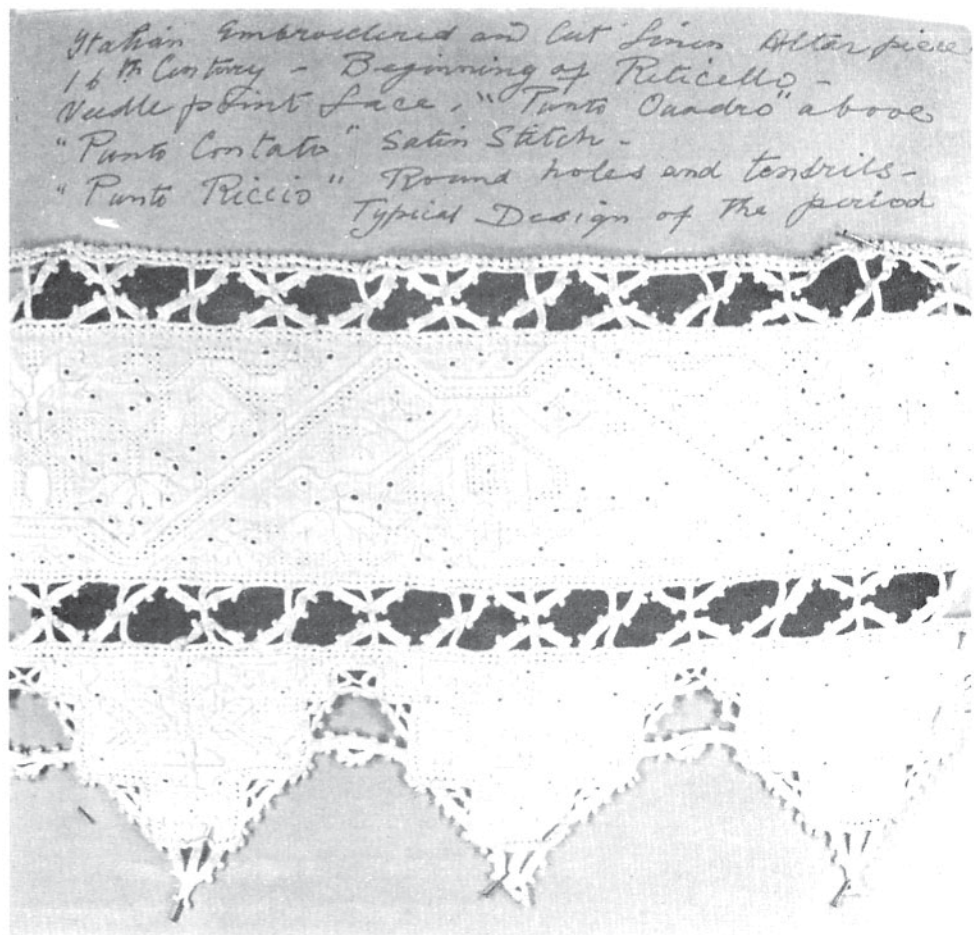 Italian Embroidered and Cut Linen Altar piece
16th Century - Beginning of Reticello -
Needle point Lace, "Punto Quadro" above
"Punto Contato" Satin Stitch -
"Punto Riccio" Round holes and tendrils -
Typical Design of the period